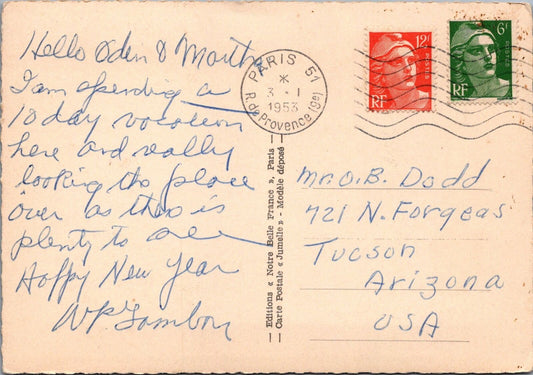 Hello Oden & Martha
I am spending a
10 day vacation
here and really
looking the place
over as there is
plenty to see
Happy New Year
PARIS 51
*
3 - 1
1953
R. de Provence (9e)
12F
RF
6F
RF
Editions « Notre Belle France », Paris
Carte Postale « Jumelle » - Modèle déposé
Mr. O. B. Dodd
721 N. Forgeas
Tucson
Arizona
USA